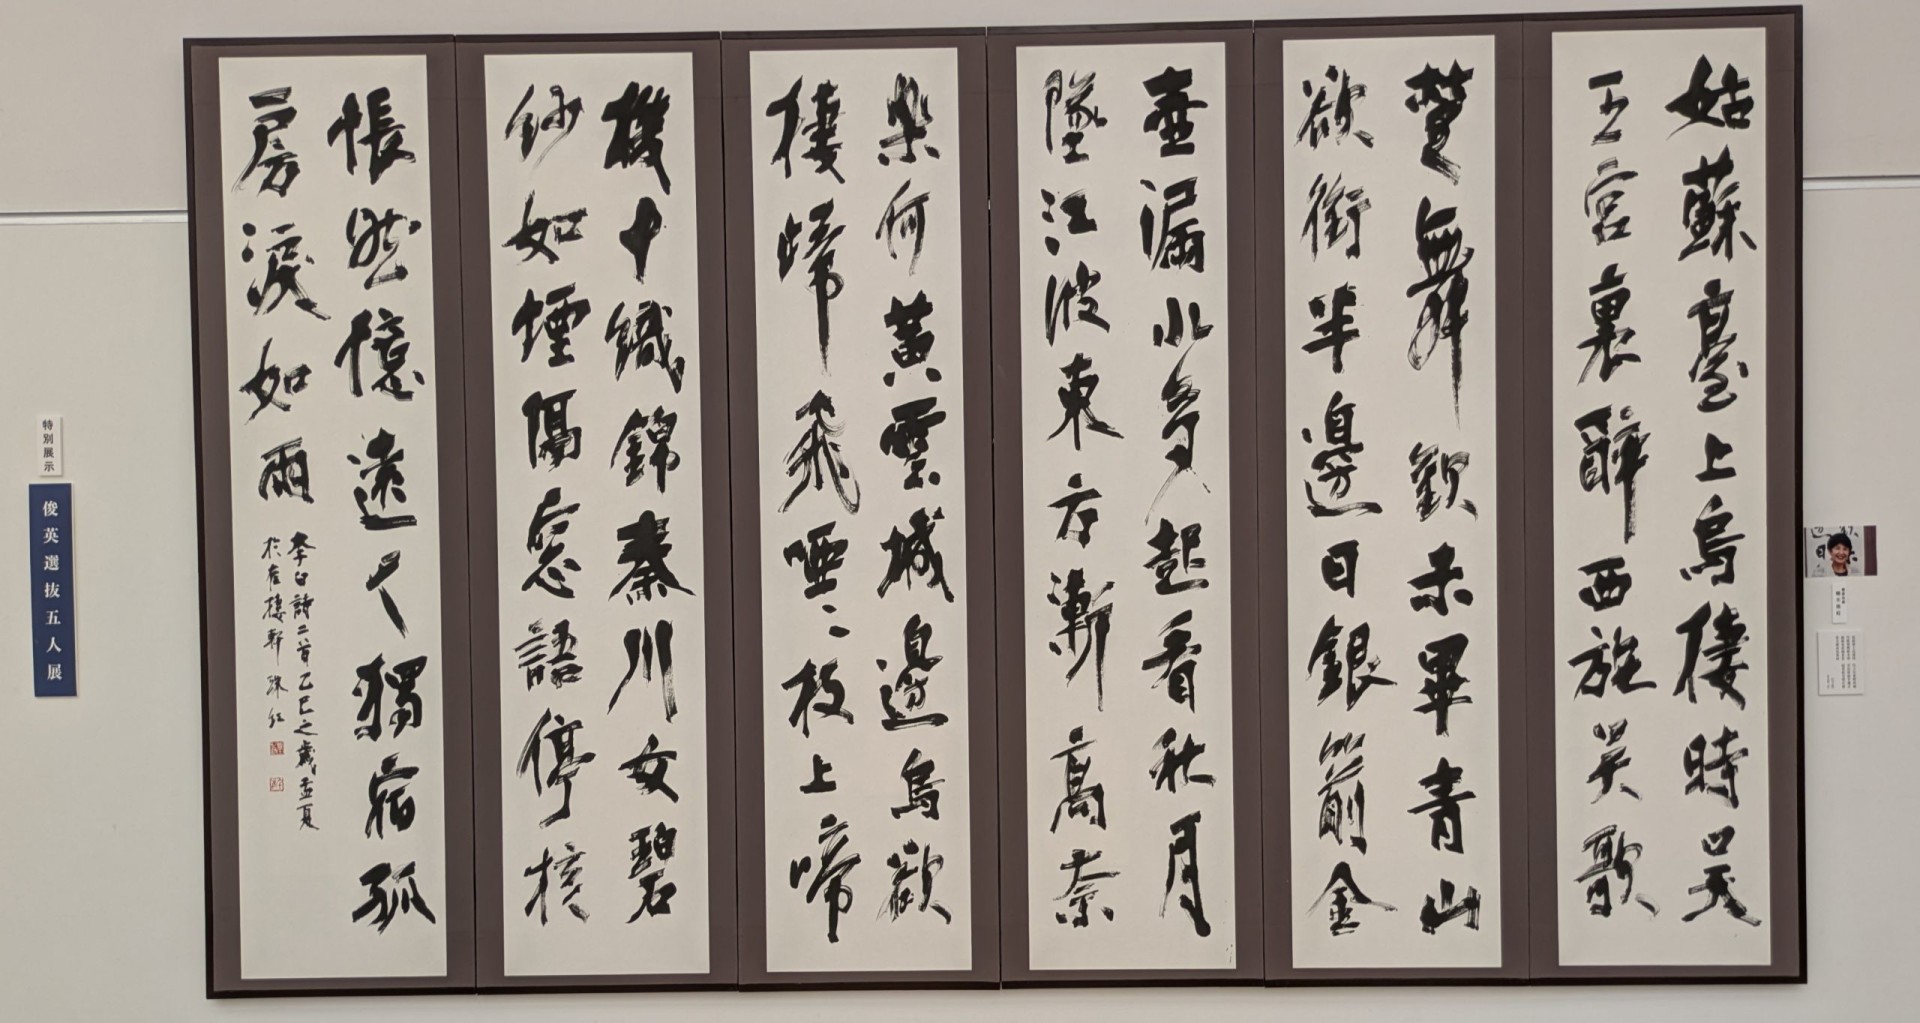 姑蘇臺上烏棲時吳
王宮裏醉西施吳歌
楚舞歡未畢青山
欲銜半邊日銀箭金
壺漏水多起看秋月
墜江波東方漸高奈
樂何黃雲城邊烏欲
棲歸飛啞〻枝上啼
機中織錦秦川女碧
紗如煙隔窓語停梭
悵然憶遠人獨宿孤
房淚如雨
李白詩二首乙巳之歲孟夏
於 棲軒 珠紅
特別展示
俊英選抜五人展